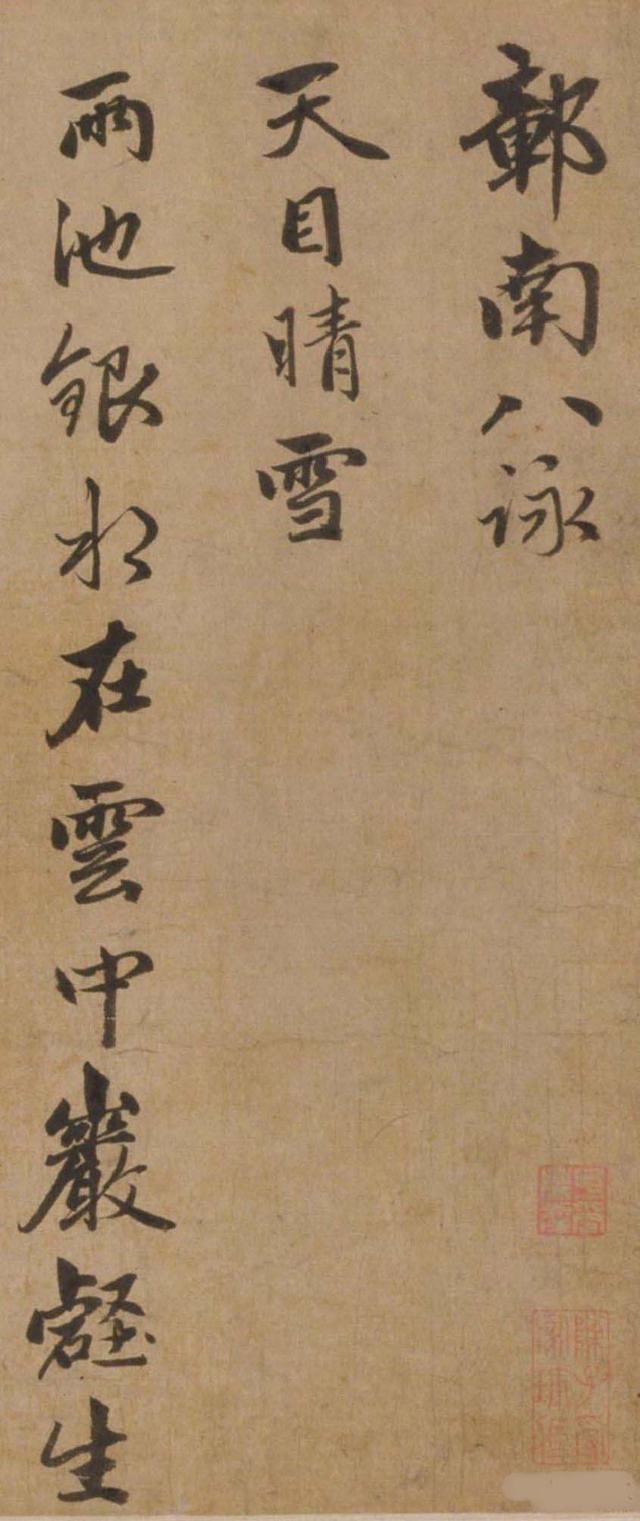 鄣南八詠
天目晴雪
兩池銀水在雲中巖壑生